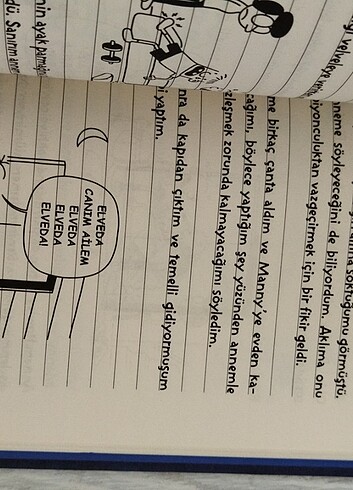 nin ayak parmağın
dü. Sanırım anne
soktuğumu görmüştü.
nneme söyleyeceğini de biliyordum. Aklıma onu
iyonculuktan vazgeçirmek için bir fikir geldi.
me birkaç çanta aldım ve Manny'ye evden ka-
cağımı, böylece yaptığım şey yüzünden annemle
zleşmek zorunda kalmayacağımı söyledim.
nra da kapıdan çıktım ve temelli gidiyormuşum
i yaptım.
ELVEDA
CANIM AİLEM
ELVEDA
ELVEDA
ELVEDA!